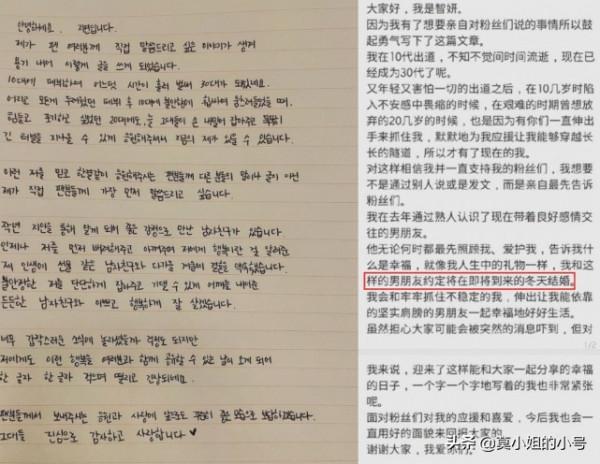 안녕하세요, 지연입니다.
제가 팬 여러분께 직접 말씀드리고 싶은 이야기가 생겨
용기 내어 이렇게 글을 쓰게 되었습니다.
10대에 데뷔하여 어느덧 시간이 흘러 벌써 30대가 되었네요.
어리고 모든게 두려웠던 데뷔 후 10대에 불안함에 휩싸여 움츠러들었을 때,
힘들고 포기하고 싶었던 20대에도, 늘 그대들이 손 내밀어 잡아주고 묵묵히
긴 터널을 지나올 수 있게 응원해주셔서 지금의 제가 있을 수 있었습니다.
이런 저를 믿고 한결같이 응원해주시는 팬분들께 다른 분들의 말이나 글이 아닌
제가 직접 팬분들께 가장 먼저 말씀드리고 싶습니다.
작년 지인을 통해 알게 되어 좋은 감정으로 만난 남자친구가 있습니다.
언제나 저를 먼저 배려해주고 아껴주며 저에게 행복이란 걸 알려준
제 인생에 선물 같은 남자친구와 다가올 겨울에 결혼을 약속했습니다.
불안정한 저를 단단하게 잡아주고 기댈 수 있게 어깨를 내어준
든든한 남자친구와 예쁘고 행복하게 잘 살겠습니다.
너무 갑작스러운 소식에 놀라셨을까 걱정도 되지만
저에게도 이런 행복을 여러분과 함께 공유할 수 있는 날이 오게 되어
한 글자 한 글자 적으며 떨리고 긴장되네요.
팬분들께서 보내주시는 응원과 사랑에 앞으로도 꾸준히 좋은 모습으로 보답하겠습니다.
그대들 진심으로 감사하고 사랑합니다♥
大家好，我是智妍。
因为我有了想要亲自对粉丝们说的事情所以鼓
起勇气写下了这篇文章。
我在10代出道，不知不觉间时间流逝，现在已
经成为30代了呢。
又年轻又害怕一切的出道之后，在10几岁时陷
入不安感中畏缩的时候，在艰难的时期曾想放
弃的20几岁的时候，也是因为有你们一直伸出
手来抓住我，默默地为我应援让我能够穿越长
长的隧道，所以才有了现在的我。
对这样相信我并一直支持我的粉丝们，我想要
不是通过别人说或是发文，而是亲自最先告诉
粉丝们。
我在去年通过熟人认识了现在带着良好感情交
往的男朋友。
他无论何时都最先照顾我、爱护我，告诉我什
么是幸福，就像我人生中的礼物一样，我和这
样的男朋友约定将在即将到来的冬天结婚。
我会和牢牢抓住不稳定的我，伸出让我能依靠
的坚实肩膀的男朋友一起幸福地好好生活。
虽然担心大家可能会被突然的消息吓到，但对
1/2
我来说，迎来了这样能和大家一起分享的幸福
的日子，一个字一个字地写着的我也非常紧张
呢。
面对粉丝们对我的应援和喜爱，今后我也会一
直用好的面貌来回报大家的。
谢谢大家，我爱你们。
头条 @莫小姐的小号